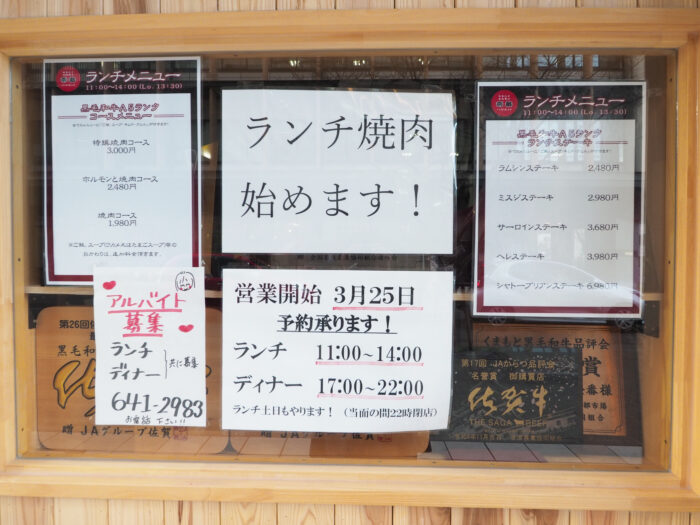 ランチメニュー
11:00~14:00 (Lo. 13:30)
黒毛和牛A5ランク
コースメニュー
特撰焼肉コース
3,000円
ホルモンと焼肉コース
2,480円
焼肉コース
1,980円
※ご飯、スープ(ワカメスープ又はたまごスープ)等の
おかわりは、追加料金頂きます。
ランチ焼肉
始めます!
ランチメニュー
11:00~14:00 (Lo. 13:30)
黒毛和牛A5ランク
ランチステーキ
ラムシンステーキ 2,480円
ミスジステーキ 2,980円
サーロインステーキ 3,680円
ヘレステーキ 3,980円
シャトーブリアンステーキ 6,980円
アルバイト
募集
ランチ
ディナー
共に募集
641-2983
お電話 下さい!!
営業開始 3月25日
予約承ります!
ランチ 11:00~14:00
ディナー 17:00~22:00
ランチ土日もやります! (当面の間22時閉店)
第26回
黒毛和牛
贈 JAグループ佐賀
第17回 JAからつ品評会
名誉賞 御購買店
佐賀牛
THE SAGA BEEF
くまもと黒毛和牛品評会
賞